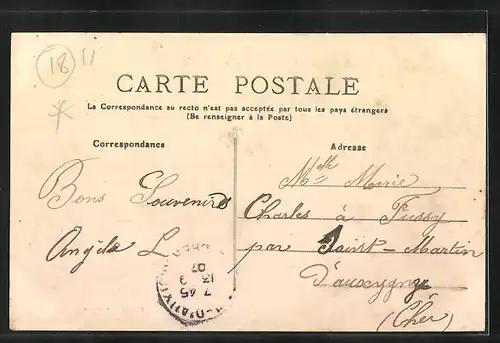 18 11
CARTE POSTALE
La Correspondance au recto n'est pas acceptée par tous les pays étrangers
(Se renseigner à la Poste)
Correspondance
Adresse
Bons Souvenirs
Angèle L.
Mlle Marie
Charles à Fussy
par Saint-Martin
D'auxygny
(Cher)
7 45
13 9
07